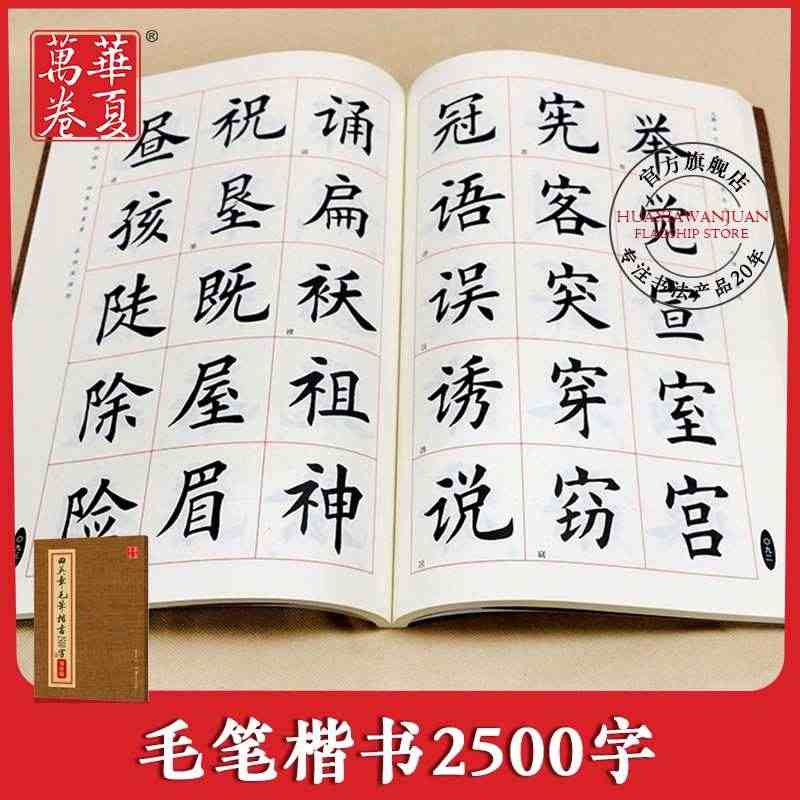 華夏萬卷®
官方旗舰店
HUAXIAWANJUAN
FLAGSHIP STORE
专注书法产品20年
昼 祝 诵
孩 垦 扁
陡 既 袄
除 屋 祖
险 眉 神
冠 宪 举
语 客 觉
误 突 宣
诱 穿 室
说 窃 宫
〇九二
田英章毛笔楷书2500字
毛笔楷书2500字